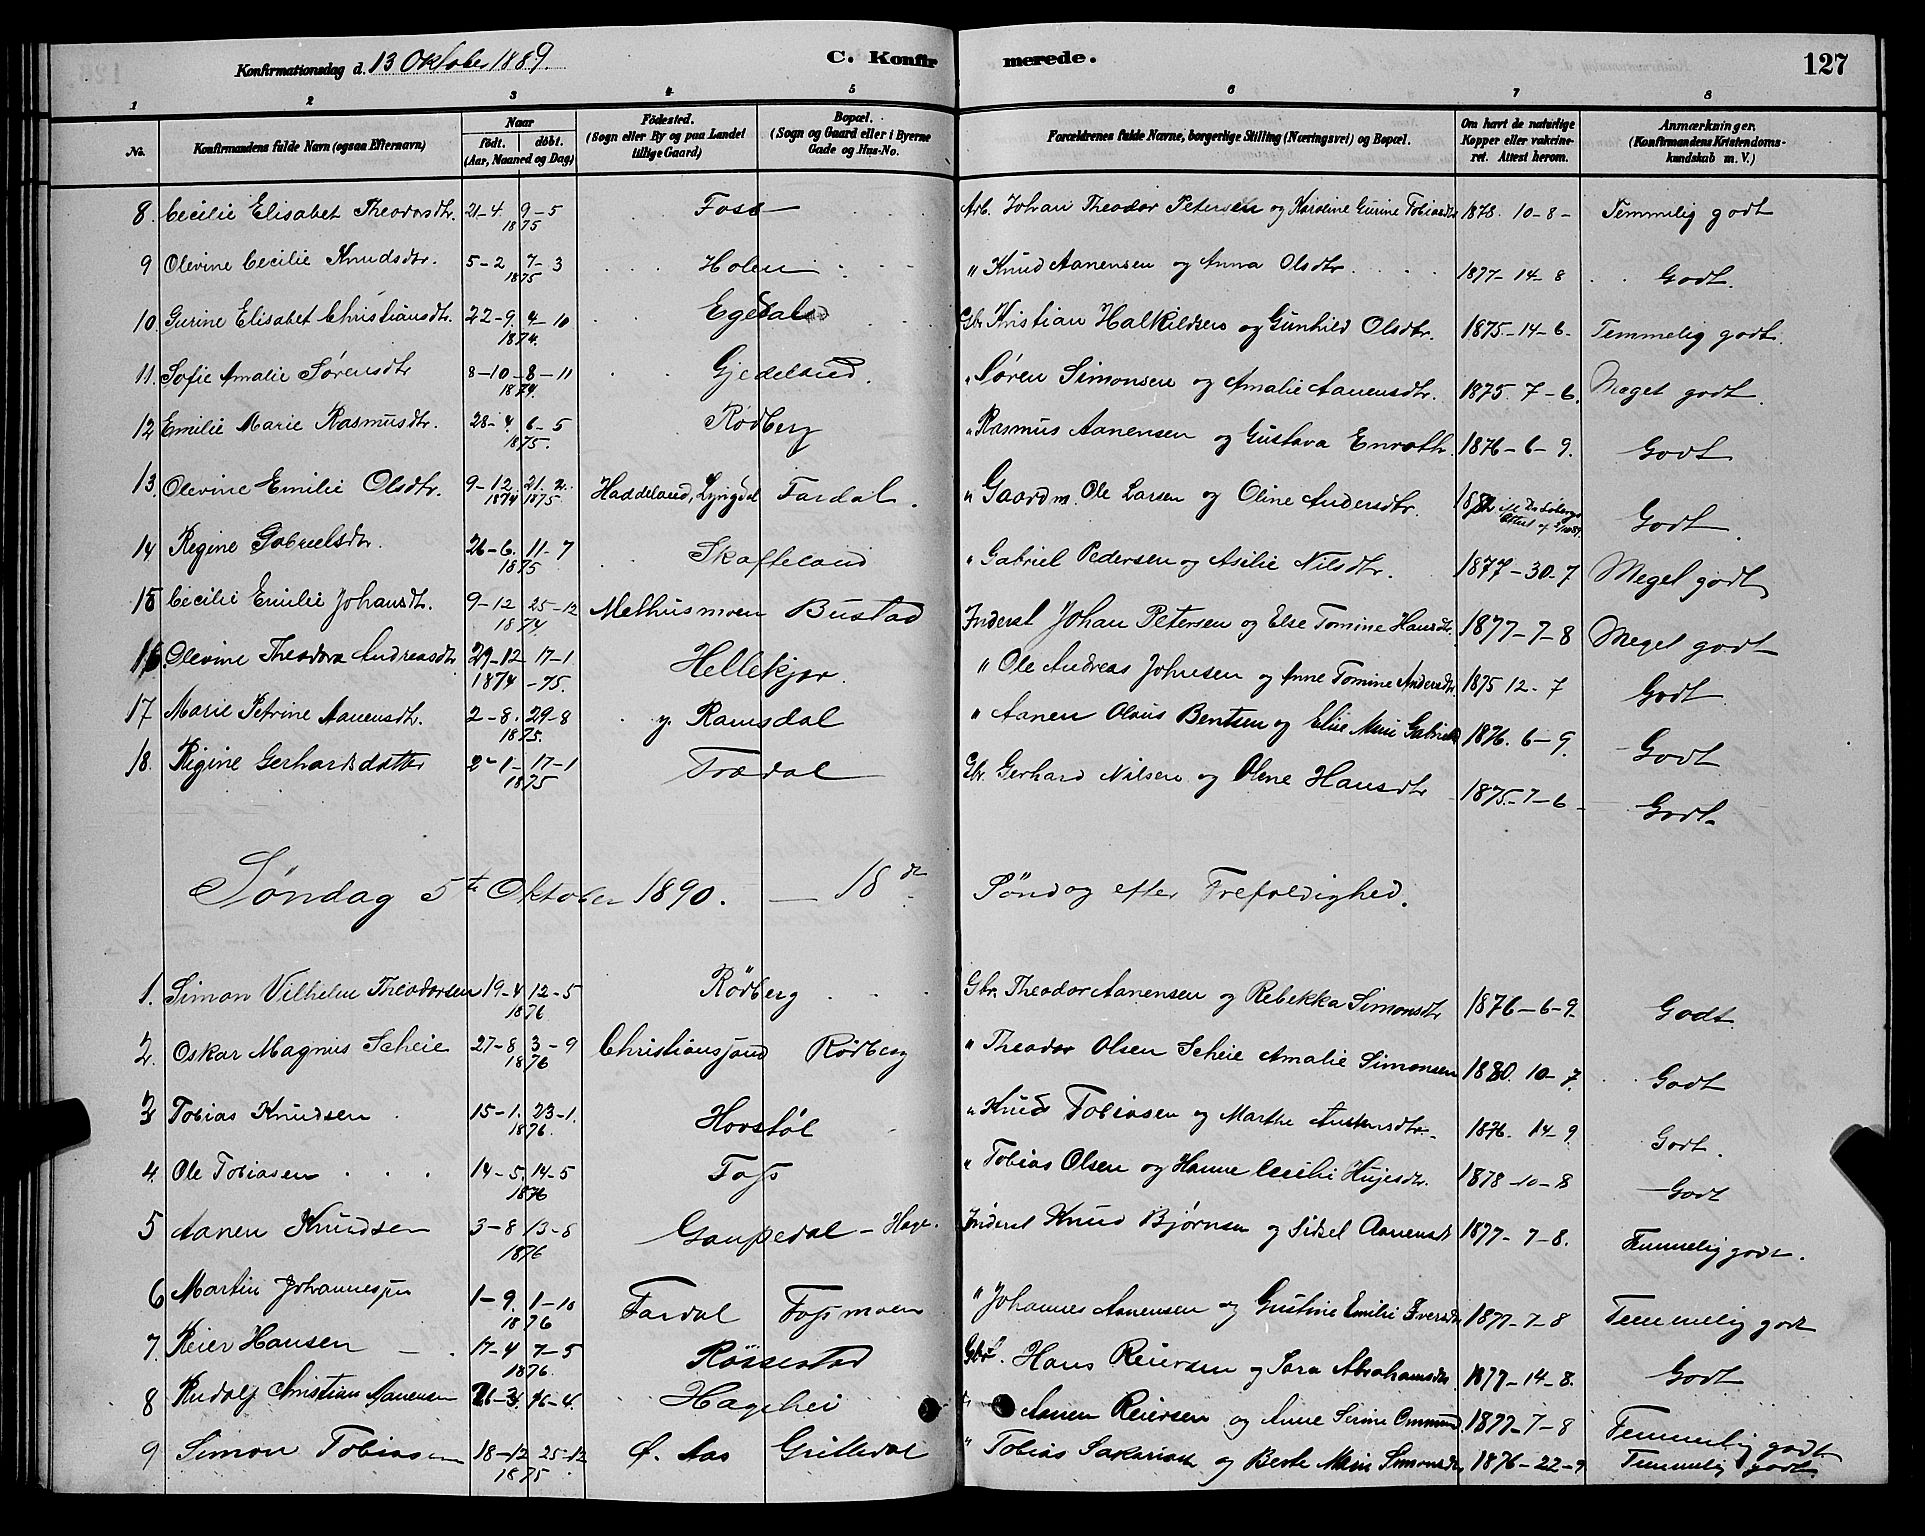 Konfirmationsdag d. 13 Oktober 1889. C. Konfirmerede. 127
1 2 3 4 5 6 7 8
No. Konfirmandens fulde Navn (ogsaa Efternavn) Naar födt. döbt. (Aar, Maaned og Dag) Födested. (Sogn eller By og paa Landet tillige Gaard) Bopæl. (Sogn og Gaard eller i Byerne Gade og Hus-No. Forældrenes fulde Navne, borgerlige Stilling (Næringsvei) og Bopæl. Om havt de naturlige Kopper eller vakcineret. Attest herom. Anmærkninger. (Konfirmandens Kristendomskundskab m. V.)
8. Cecilie Elisabet Theodorsdtr. 21-4. 9-5 1875 Foss Arb. Johan Theodor Petersen og Karoline Gurine Tobiasdtr 1878. 10-8- Temmelig godt
9 Olevine Cecilie Knudsdtr. 5-2 7-3 1875 Holen " Knud Aanensen og Anna Olsdtr 1877-14-8 Godt.
10. Gurine Elisabet Christiansdtr. 22-9. 4-10 1874. Egedal Gbr. Kristian Halkildsen og Gunhild Olsdtr. 1875-14-6- Temmelig godt.
11. Sofie Amalie Sørensdtr 8-10-8-11 1874. Gjedeland. " Søren Simonsen og Amalie Aanensdtr. 1875. 7-6. Meget godt.
12 Emilie Marie Rasmusdtr. 28-4. 6-5 1875. Rödberg " Rasmus Aanensen og Gustava Enroth. 1876-6-9. Godt
13. Olevine Emilie Olsdtr. 9-12 1874 21. 2. 1875. Haddeland, Lyngdal Fardal. " Gaardm. Ole Larsen og Oline Andersdtr. Godt.
14 Regine Gabrielsdtr. 26-6. 11-7 1875 Skofteland " Gabriel Pedersen og Asilie Nilsdtr. 1877-30-7 Meget godt
15 Cecilie Emilie Johansdtr. 9-12 25-12 1874. Methusmoen Bustad Inderst Johan Petersen og Else Tomine Hansdtr. 1877-7-8 Meget godt
16. Olevine Theodora Andreasdtr 29-12 17-1 1874-75. Hellekjær. " Ole Andreas Johnsen og Anne Tomine Andersdtr. 1875 12-7 Godt.
17 Marie Petrine Aanensdtr. 2-8. 29-8 1875. y. Ramsdal " Aanen Olaus Bentsen og Elise Marie Gabriels 1876. 6-9. Godt
18. Regine Gerhardsdatter 2-1-17-1 1875 Trædal Gbr. Gerhard Nilsen og Olene Hansdtr 1875-7-6- Godt.
Søndag 5te Oktober 1890. - 18de Søndag efter Trefoldighed.
1. Simon Vilhelm Theodorsen 19-4 12-5 1876 Rödberg Gbr. Theodor Aanensen og Rebekka Simonsdtr 1876-6-9. Godt.
2. Oskar Magnus Scheie 27-8 3-9 1876 Christianssand Rödberg " Theodor Olsen Scheie Amalie Simonsen 1880. 10-7. Godt
3 Tobias Knudsen 15-1. 23-1. 1876. Hovstöl " Knud Tobiasen og Marthe Austensdtr. 1876. 14-9. Godt.
4. Ole Tobiasen 14-5. 14-5 1876 Foss " Tobias Olsen og Hanne Cecilie 1878-10-8 Godt
5 Aanen Knudsen 3-8 13-8 1876 Gaupedal - Hage. Inderst Knud Bjørnsen og Sidsel Aanensdt 1877-7-8. Temmelig godt.
6 Martin Johannessen 1-9. 1-10 1876 Fardal Fossmoen " Johannes Aanensen og Gustine Emilie Iversdtr 1877-7-8 Temmelig godt
7. Reier Hansen 17-4 7-5 1876. Rössestad Gbr. Hans Reiersen og Sara Abrahamsdtr. 1877-14-8. Godt
8 Rudolf Kristian Aanensen 26-3. 16-4. Hagehei " Aanen Reiersen og Anne Serine Ommund 1877-7-8 Temmelig godt
9 Simon Tobiassen 18-12 25-12 1875 Ö. Aas Grilledal " Tobias Sakariasen og Berte Marie Simonsdtr 1876-22-9 Temmelig godt.